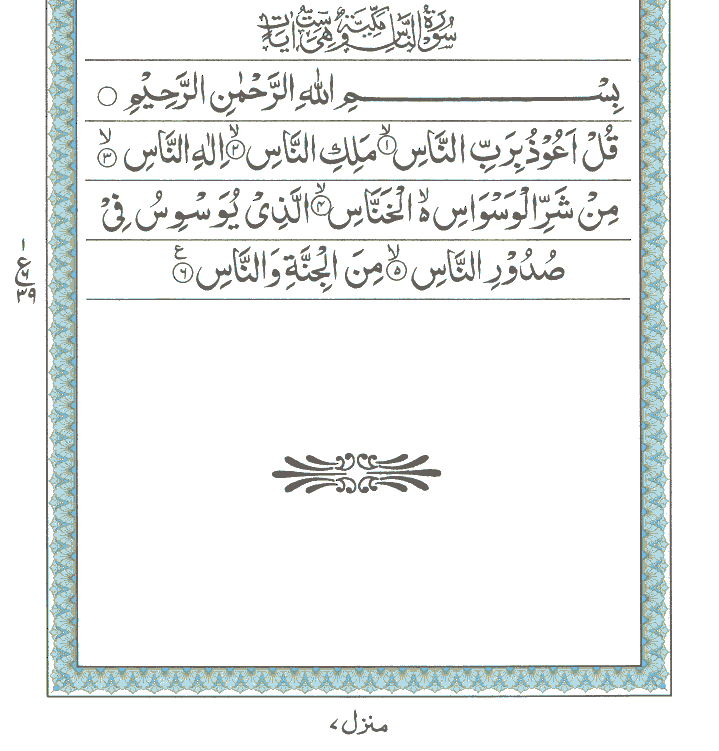 سُوۡرَةُ النَّاسِ مَكِّيَّةٌ وَّهِيَ سِتُّ اٰيَاتٍ
بِسۡمِ اللّٰهِ الرَّحۡمٰنِ الرَّحِيۡمِ ○
قُلۡ اَعُوۡذُ بِرَبِّ النَّاسِ ۙ‏﴿۱﴾ مَلِكِ النَّاسِ ۙ‏﴿۲﴾ اِلٰهِ النَّاسِ ۙ‏﴿۳﴾
مِنۡ شَرِّ الۡوَسۡوَاسِ ۙ۬ الۡخَـنَّاسِ ۙ‏﴿۴﴾ الَّذِىۡ يُوَسۡوِسُ فِىۡ
صُدُوۡرِ النَّاسِ ۙ‏﴿۵﴾ مِنَ الۡجِنَّةِ وَالنَّاسِ ﴿۶﴾ ع
۱
ع
۶
۳۹
منزل ۷